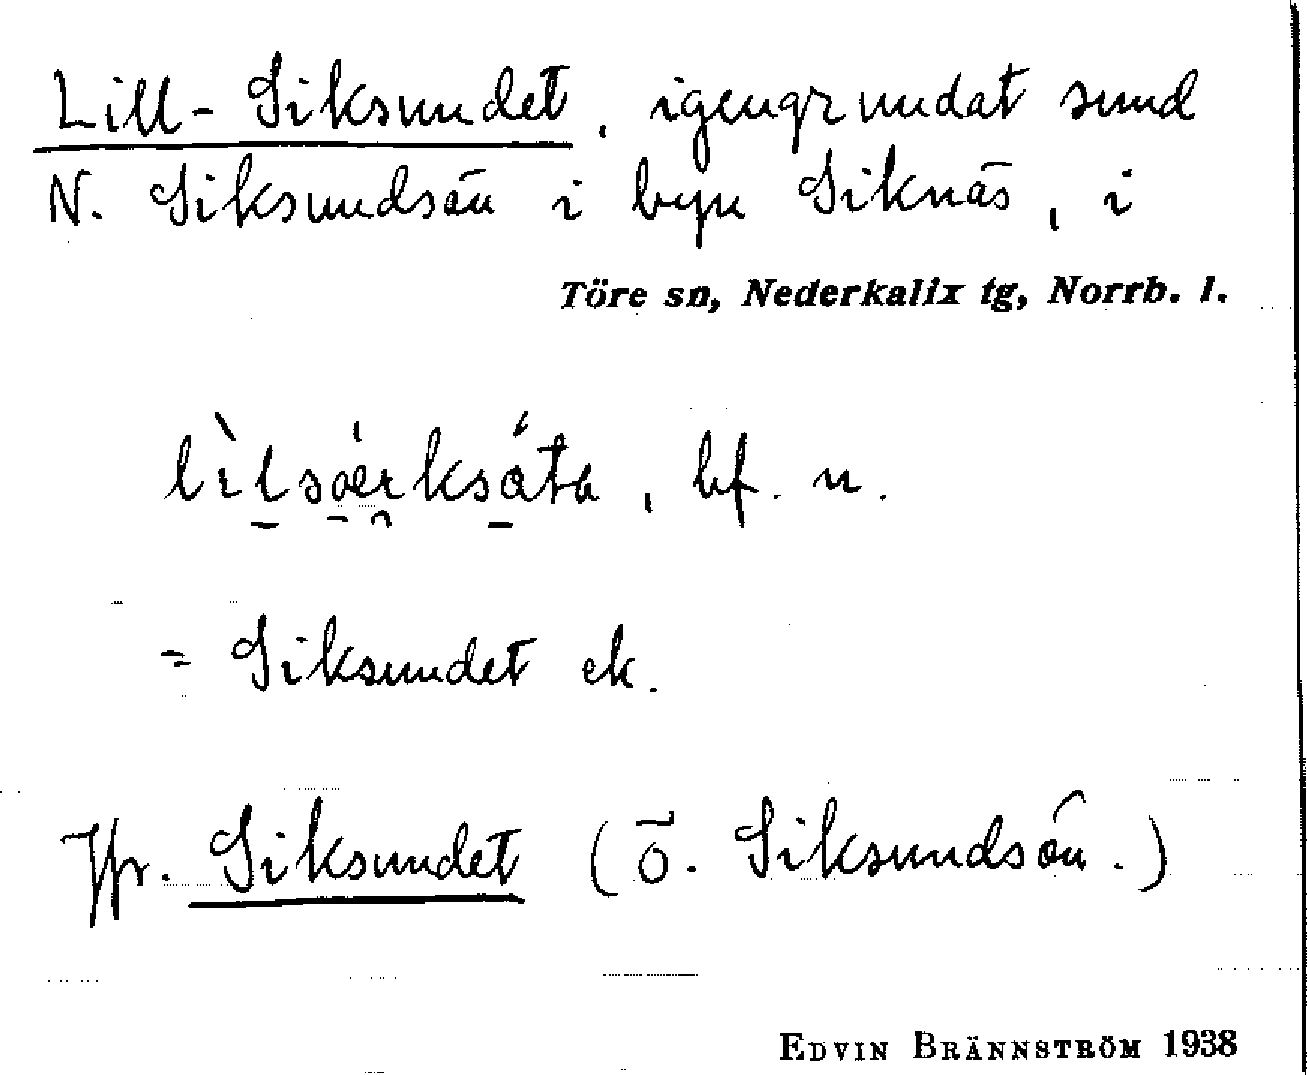 Lill-Siksundet, igengrundat sund
N. Siksundsön i byn Siknäs, i
Töre sn, Nederkalix tg, Norrb. l.
bf. n.
= Siksundet ek.
Jfr. Siksundet (Ö. Siksundsön.)
EDVIN BRÄNNSTRÖM 1938